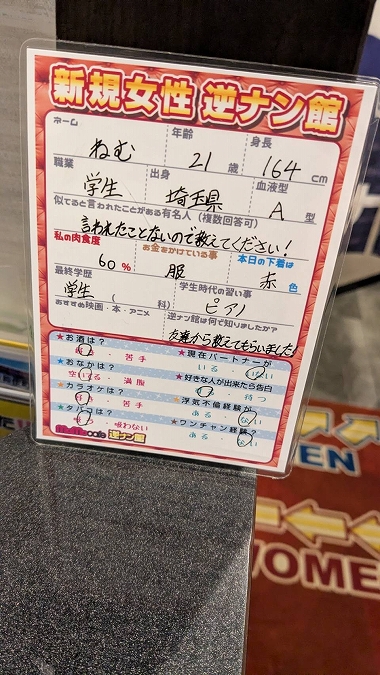 新規女性 逆ナン館
ネーム 年齢 身長
ねむ 21歳 164cm
職業 出身 血液型
学生 埼玉県 A型
似てると言われたことがある有名人(複数回答可)
言われたことないので教えてください!
私の肉食度 お金をかけている事 本日の下着は
60% 服 赤色
最終学歴 学生時代の習い事
学生( 科) ピアノ
おすすめ映画・本・アニメ 逆ナン館は何で知りましたか?
友達から教えてもらいました!
★お酒は? ★現在パートナーが
・苦手 いる・
★おなかは? ★好きな人が出来たら告白
空いてる・満腹 ・待つ
★カラオケは? ★浮気不倫経験が
・苦手 ある・ない
★タバコは? ★ワンチャン経験?
吸う・吸わない ある・ない
逆ナン館
EN
WOME